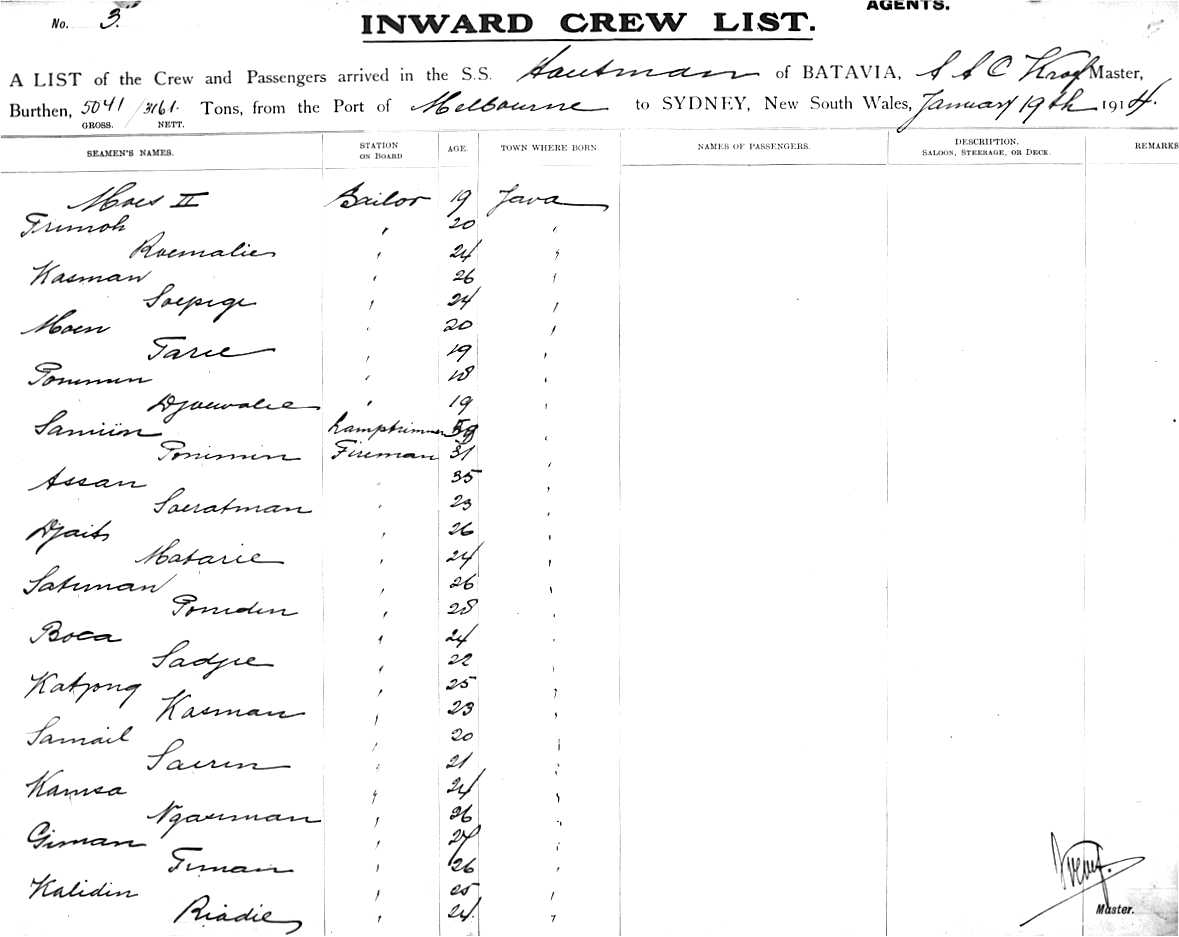 AGENTS.
No. 3.
INWARD CREW LIST.
A LIST of the Crew and Passengers arrived in the S.S. Houtman of BATAVIA, Master,
Burthen, 5041 / 3161. Tons, from the Port of Melbourne to SYDNEY, New South Wales, January 19th 1914.
GROSS. NETT.
SEAMEN'S NAMES. STATION ON BOARD AGE. TOWN WHERE BORN. NAMES OF PASSENGERS. DESCRIPTION. SALOON, STEERAGE, OR DECK. REMARKS
Moes II Sailor 19 Java
Trimoh " 20 "
Roemalie " 24 "
Kasman " 26 "
Soepege " 24 "
Moen " 20 "
Tarie " 19 "
Ponimin " 18 "
Djoewalie " 19 "
Samiin Lamptrimmer "
Ponimin Fireman 31 "
Assan " 35 "
Soeratman " 23 "
Djait " 26 "
Matarie " 24 "
Satiman " 26 "
Ponidin " 28 "
Boca " 24 "
Sadjie " 22 "
Katjong " 25 "
Kasman " 23 "
Samail " 20 "
Saerin " 21 "
Kamsa " 24 "
Ngasiman " 26 "
Giman " 27 "
Timan " 26 "
Kalidin " 25 "
Riadie " 24. "
Master.